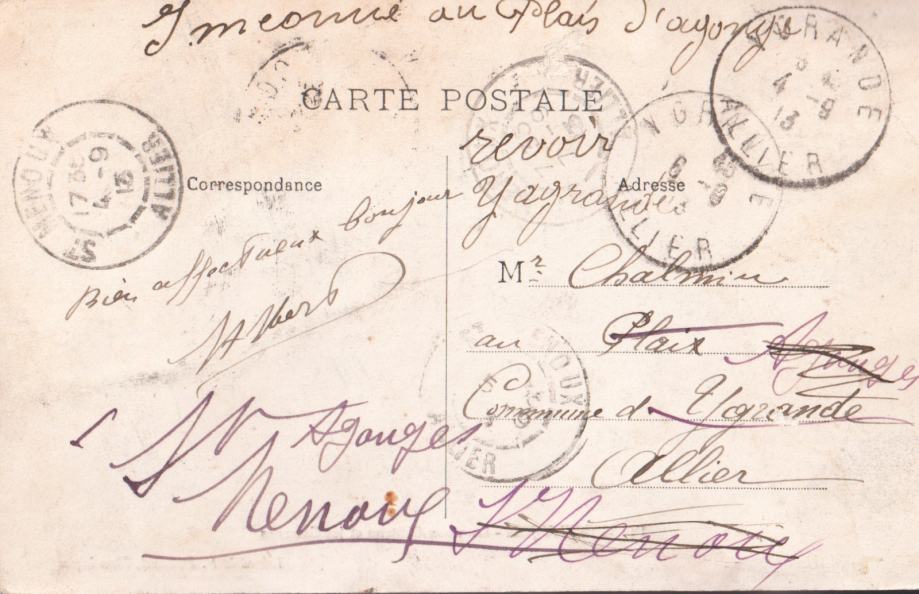 Inconnu au Plais d'agonge
CARTE POSTALE
revoir
Ygrande
Correspondance
Adresse
Bien affectueux bonjour
Mr. Chalmin
au Plaix Agonges
Commune d Ygrande
Allier
St Agonges
Menoux St Menoux
ST MENOUX ALLIER
17 30
4 - 9
13
YGRANDE
ALLIER
4 - 9
13
YGRANDE
ALLIER
6
13
MENOUX
ALLIER